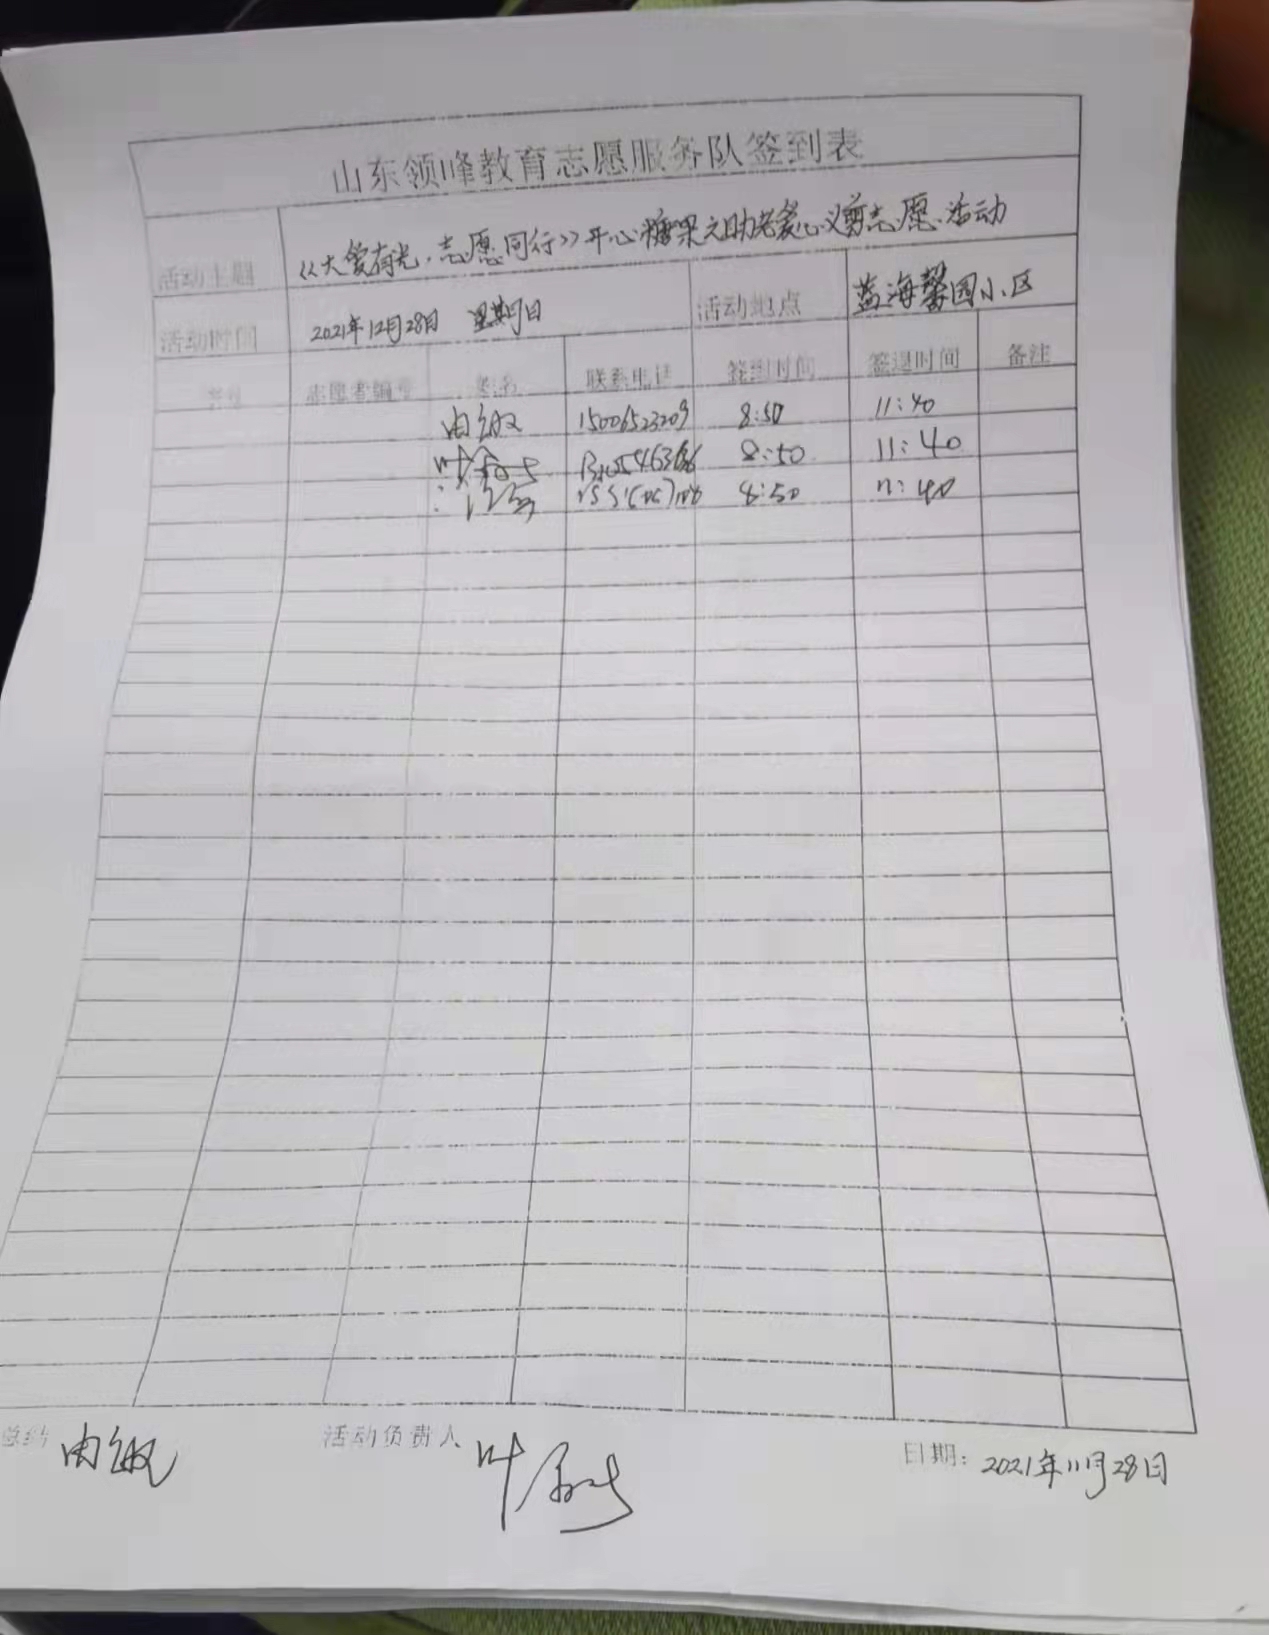 山东领峰教育志愿服务队签到表
活动主题 《大爱有光，志愿同行》开心糖果之助老爱心义剪志愿活动
活动时间 2021年12月28日 星期日 活动地点 蓝海馨园小区
志愿者编号 联系电话 签到时间 签退时间 备注
由敏 15006523209 8:50 11:40
8:50 11:40
8:50 11:40
总结 由敏 活动负责人 叶 日期：2021年11月28日